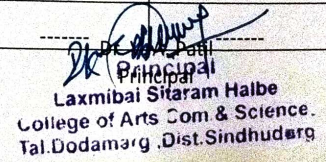 Patil
Principal
Principal
Laxmibai Sitaram Halbe
College of Arts Com & Science.
Tal.Dodamarg ,Dist.Sindhudurg